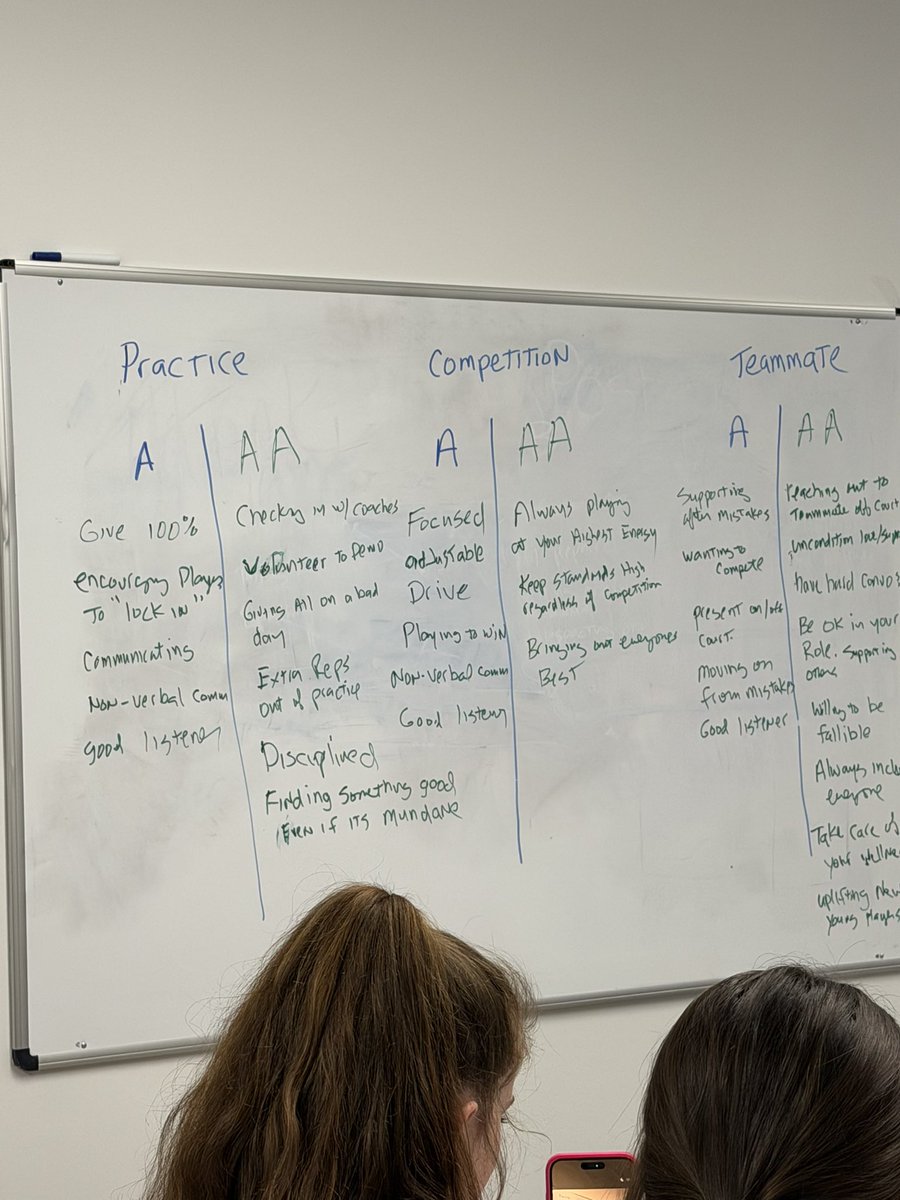 Practice
A
Give 100%
encouraging Players
To "lock in"
Communicating
Non-verbal comm
good listener
AA
Checking in w/ coaches
Volunteer to Demo
Giving All on a bad
day
Extra Reps
out of practice
Disciplined
Finding something good
Even if its mundane
Competition
A
Focused
adjustable
Drive
Playing to win
Non-verbal comm
Good listener
AA
Always playing
at your Highest Energy
Keep standards High
regardless of competition
Bringing out everyones
Best
Teammate
A
Supporting
after mistakes
wanting to
Compete
present on/off
Court.
moving on
from mistakes
Good listener
AA
reaching out to
Teammate off Court
uncondition love/
have hard convo's
Be OK in your
Role. Supporting
others
Willing to be
fallible
Always
everyone
Take care of
your
uplifting
young Players